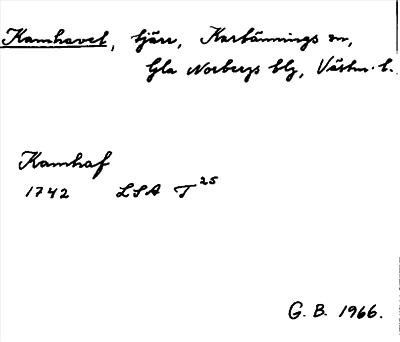 Kamhavet, tjärn, Karbännings sn,
Gla Norbergs blg, Västm. l.
Kamhaf
1742 LSA T 25
G. B. 1966.